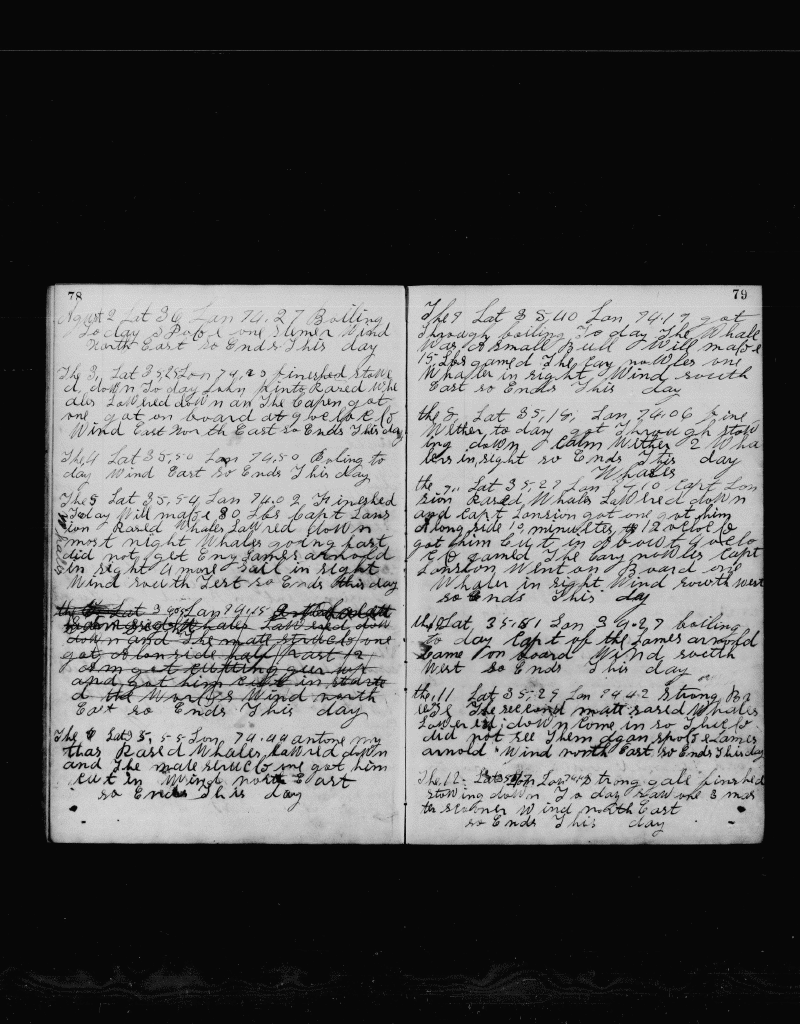 78
Agust 2 Lat 36 Lon 74.27 Boiling
To day spoke one stimer Wind
North East so Ends This day
The 3, Lat 35,25 Lon 74,20 finished stowe
d, down To day John Rared Wha
ales Lowered down an The Capen got
one got on board at 9 oclock
Wind East North East so Ends This day
The 4 Lat 35,50 Lon 74,50 Boiling to
day Wind East so Ends This day
The 5 Lat 35,54, Lon 74.02 Fineshed
Today Will make 80 Lbs Capt Lans
ion Rared Whales Lawred down
most night Whales going fast
did not get Eny James arnold
in sight 9 more sail in sight
Wind south Lest so Ends this day
Whales
Lat Lon 74.45
Whale Lawered dow
down and The mate struck one
got alonside half Past 12
cutting geer up
and got him cut in starte
d the Works Wind north
East so Ends This day
The 6 Lat 35,55 Lon, 74.44 antone my
thar Rared Whales Lawred down
and The mate struck one got him
cut in Wind north East
so Ends This day
79
The 7 Lat 35,40 Lon 74.17 got
Through boiling To day The Whale
Was a small Bull Will make
15 Lbs gamed The Cay nowles one
Whaler in right Wind south
East so Ends This day
the 8, Lat 35,18, Lon, 74.06 fine
Wether to day got Through stow
ing down Calm Wether 2 Wha
lers in, sight so Ends This day
Whales
the 9,, Lat 35,27 Lon Capt Lon
sion Rared, Whales Lawred down
and Capt Lonsion got one got him
along side 10 minuttes to 12 oclock
got him Cut in about 4 oclo
ck gamed The Cary nowles Capt
Lonsion Went on Board one
Whaler in right Wind south west
so Ends This day
the 10 Lat, 35.51 Lon 74.27 boiling
to day Capt of the James arnold
Came on board Wind south
West so Ends This day
the 11 Lat 35,29 Lon 74 42 strong Br
eze The second matt rared Whales
Lowered down Come in so Thick
did not see Them agan spoke James
arnold Wind north East so Ends This day
The 12. Lon strong gale finished
stowing down To day saw one 3 mas
ter scooner Wind north East
so Ends This day